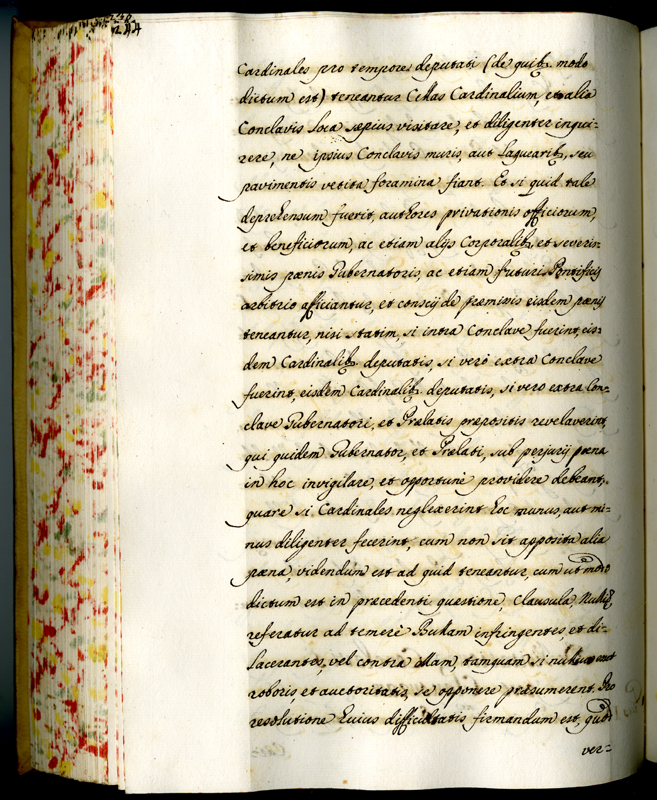 244
Cardinales pro tempore deputati (de quib. modo
dictum est) teneantur Cellas Cardinalium, et alia
Conclavis Loca sæpius visitare, et diligenter inqui-
rere, ne ipsius Conclavis muris, aut Laquearib., seu
pavimentis vetita foramina fiant. Et si quid tale
deprehensum fuerit, authores privationis officiorum,
et beneficiorum, ac etiam alijs Corporalib., et severis-
simis pœnis Gubernatoris, ac etiam futuri Pontificis
arbitrio afficiantur, et conscij de præmissis eisdem pœnis
teneantur, nisi statim, si intra Conclave fuerint, eis-
dem Cardinalib. deputatis, si verò extra Conclave
fuerint, eisdem Cardinalib. deputatis, si vero extra Con-
clave Gubernatori, et Prælatis præpositis revelaverint,
qui quidem Gubernator, et Prælati, sub perjurij pœna
in hoc invigilare, et opportunè providere debeant,
quare si Cardinales neglexerint hoc munus, aut mi-
nus diligenter fecerint, cum non sit apposita alia
pæna, videndum est ad quid teneantur, cum ut modo
dictum est in præcedenti quæstione, Clausula, Nulli,
referatur ad temerè Bullam infringentes, et di-
lacerantes, vel contra illam, tamquam si nullius esset
roboris, et auctoritatis, se opponere præsumerent. Pro
resolutione huius difficultatis firmandum est, quod
ver-